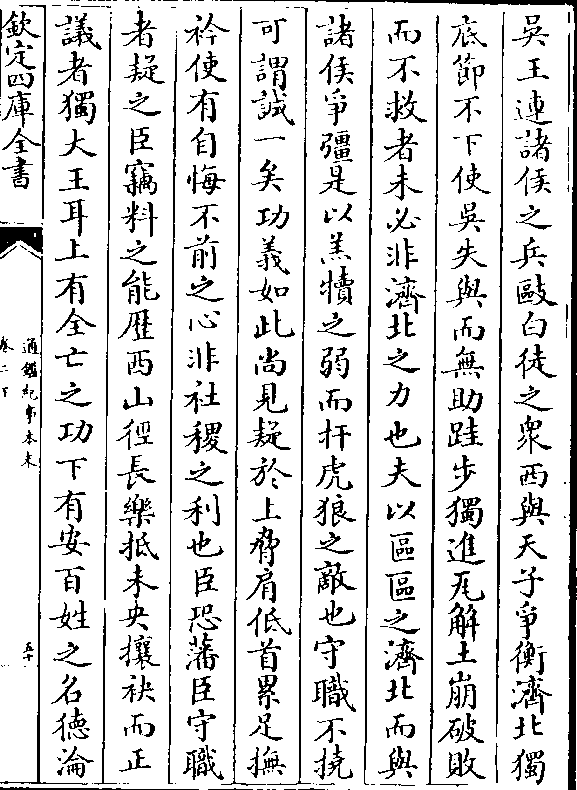 吳王連諸侯之兵敺白徒之衆西與天子爭衡濟北獨
底節不下使吳失與而無助跬步獨進瓦解土崩破敗
而不救者未必非濟北之力也夫以區區之濟北而與
諸侯爭彊是以羔犢之弱而扞虎狼之敵也守職不撓
可謂誠一矣功義如此尚見疑於上脅肩低首累足撫
衿使有自悔不前之心非社稷之利也臣恐藩臣守職
者疑之臣竊料之能歴西山徑長樂抵未央攘袂而正
議者獨大王耳上有全亡之功下有安百姓之名德淪
欽定四庫全書
通鑑紀事本末
卷二下
五十